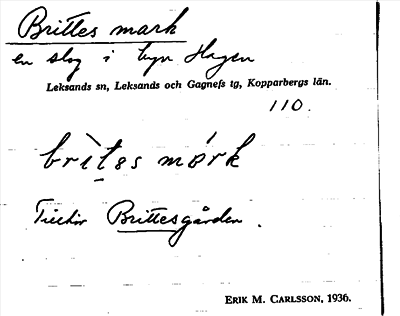 Brittes mark
en skog i byn Hagen
Leksands sn, Leksands och Gagnefs tg, Kopparbergs län.
110.
brìtes mórk
Tillhör Brittesgården.
ERIK M. CARLSSON, 1936.